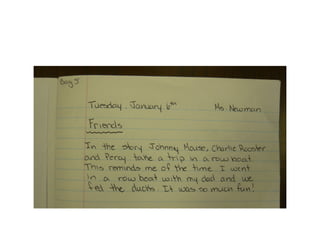 Day 5
Tuesday, January 6th Ms. Newman
Friends
In the story Johnny Mause, Charlie Rooster
and Percy take a trip in a row boat.
This reminds me of the time I went
in a row boat with my dad and we
fed the ducks. It was so much fun!